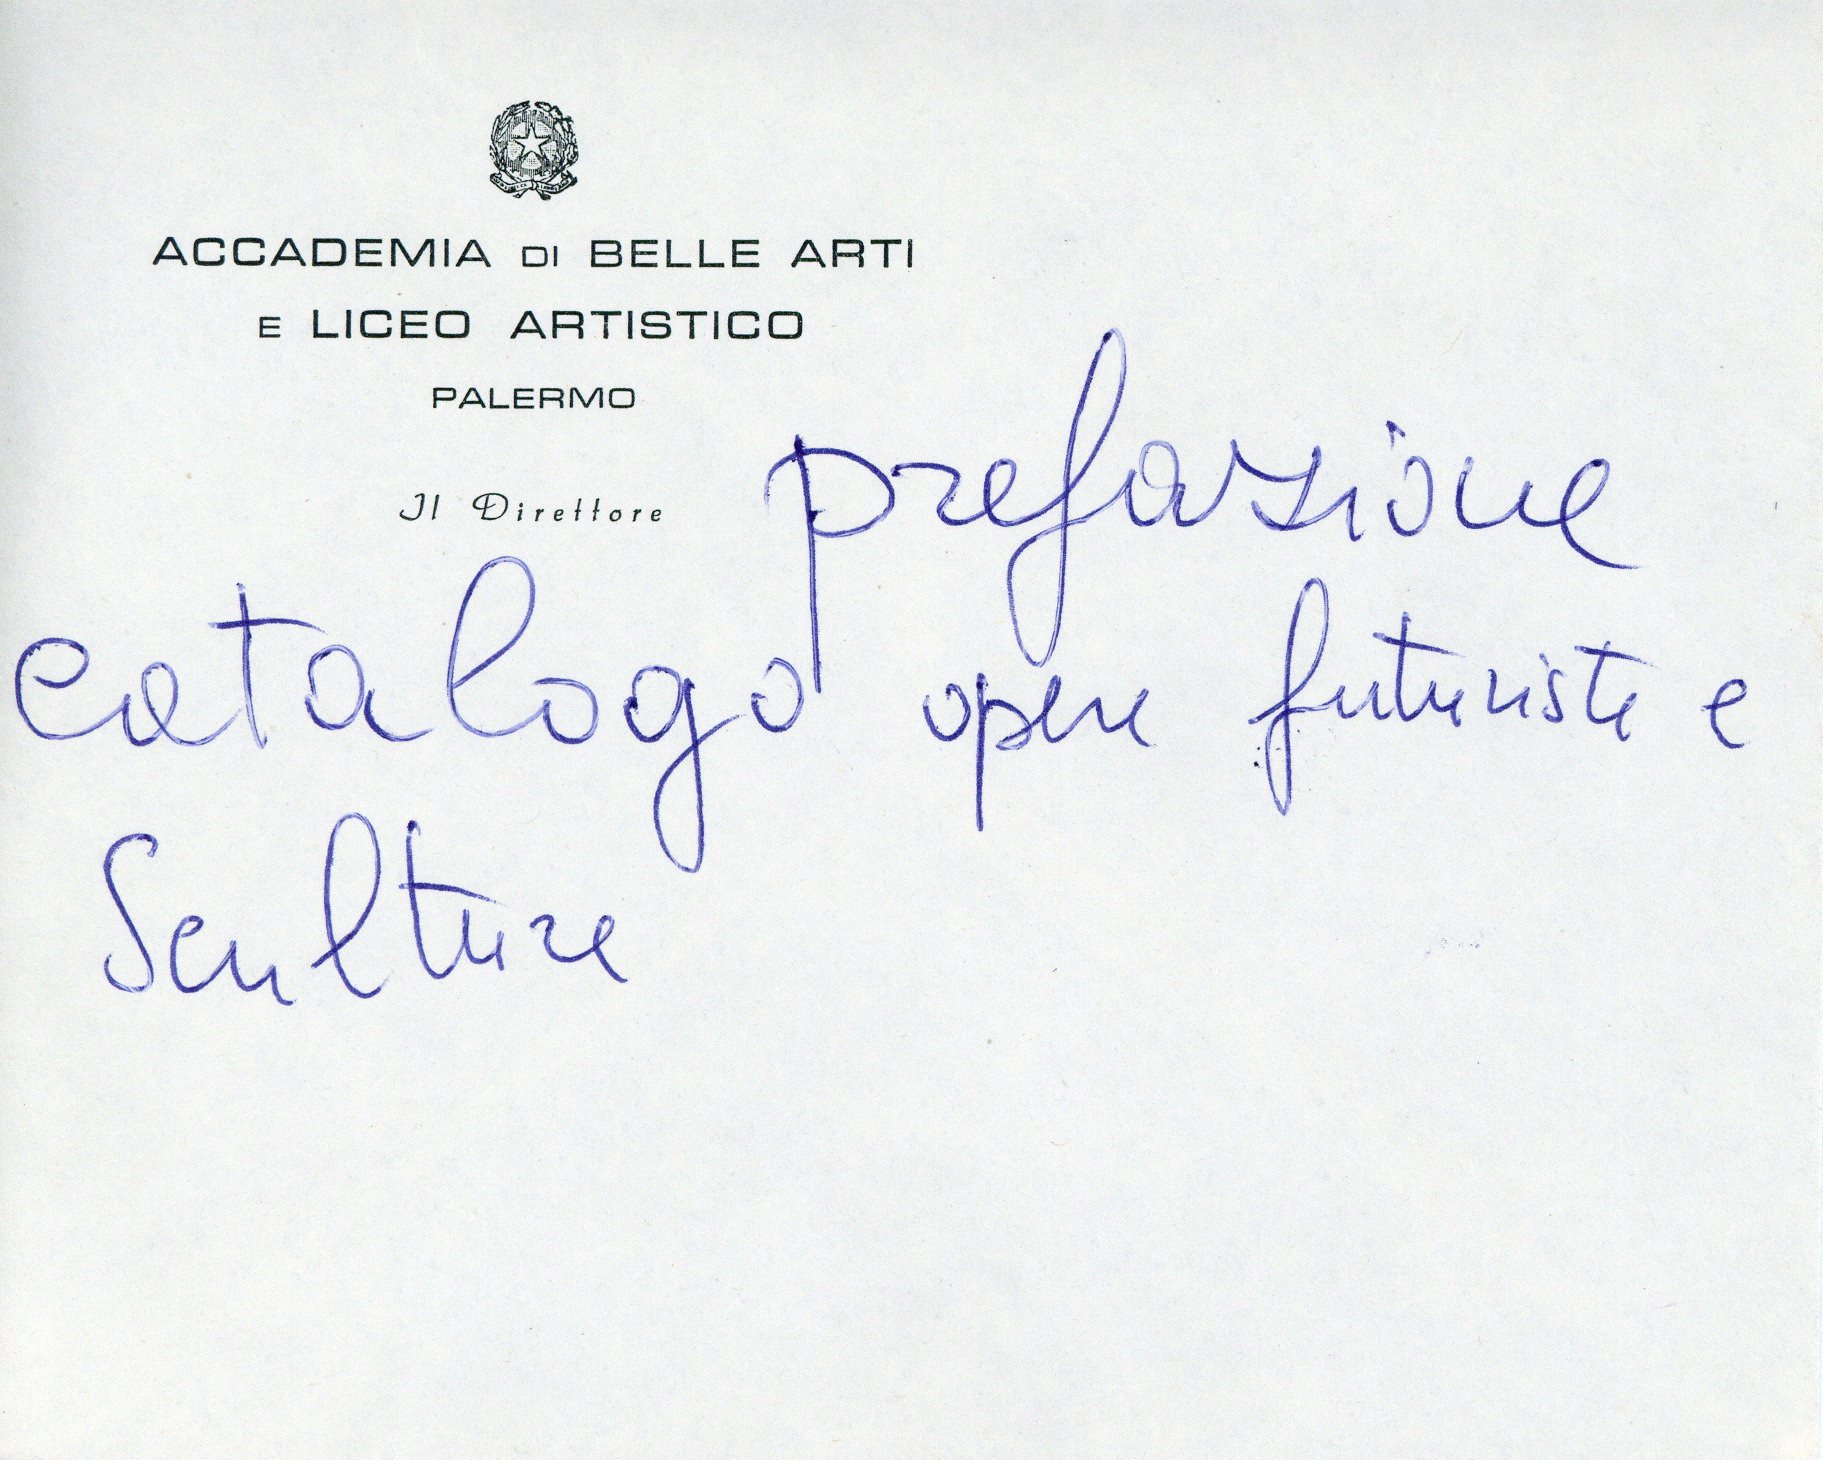 ACCADEMIA DI BELLE ARTI
E LICEO ARTISTICO
PALERMO
Il Direttore
prefazione
catalogo opere futuriste e
Sculture